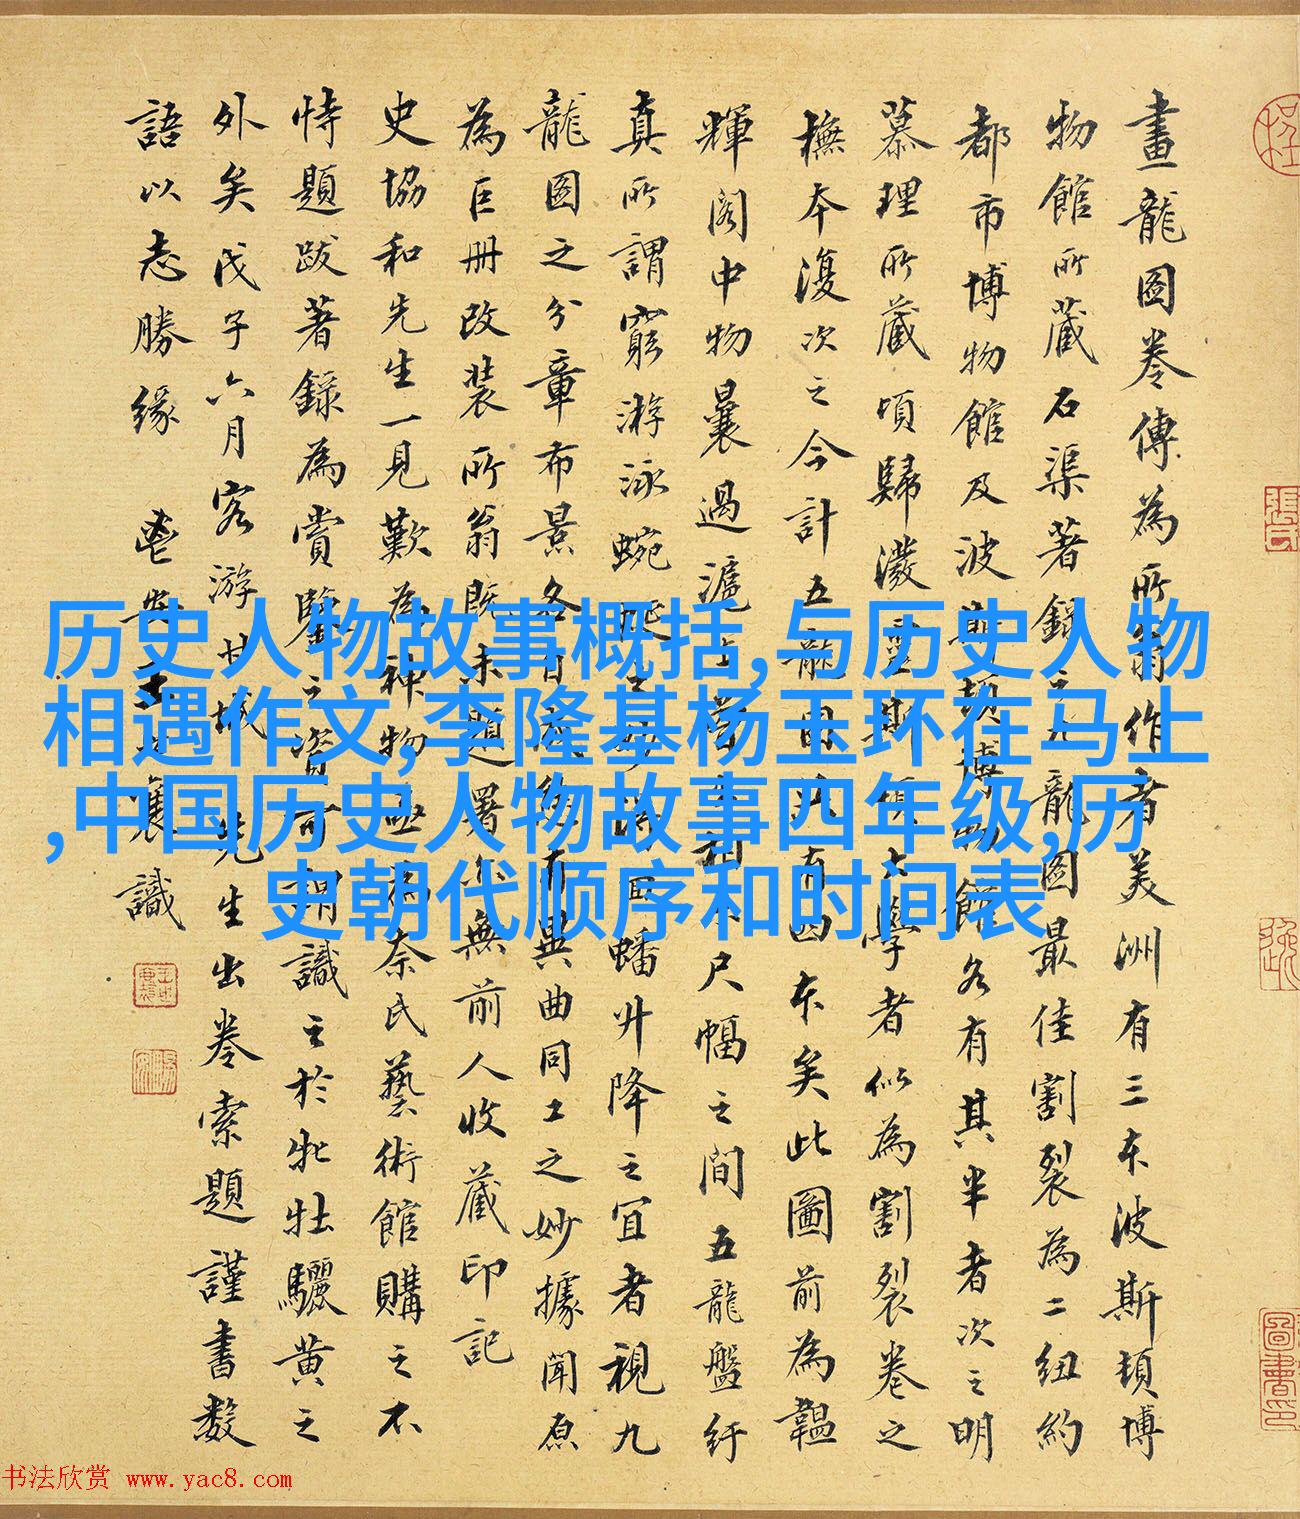 畫龍圖卷傳為所翁作者美洲有三本波斯頓博
物館所藏石渠著錄之九龍圖最佳割裂為二紐約
都市博物館及波斯頓博物館各有其半者次之明
慕理所藏頃歸斯頓大學者似為割裂卷之
橅本復次之今計五龍圖共有四本矣此圖前為韞
輝閣中物曩過滬上尺幅之間五龍盤紆
真所謂窮游泳蜿蜒之妙得回蟠升降之宜者視九
龍圖之分章布景各自有異曲同工之妙據聞原
為巨冊改裝所翁既未題署亦無前人收藏印記
史協和先生一見歎為神物亟為奈氏藝術館購之不
恃題跋著錄為賞鑒之資可謂識之於牝牡驪黃之
外矣戊子六月客游城先生出卷索題謹書數
語以志勝緣 王襄識
历史人物故事概括,与历史人物
相遇作文,李隆基杨玉环在马上
,中国历史人物故事四年级,历
史朝代顺序和时间表
书法欣赏 www.yac8.com